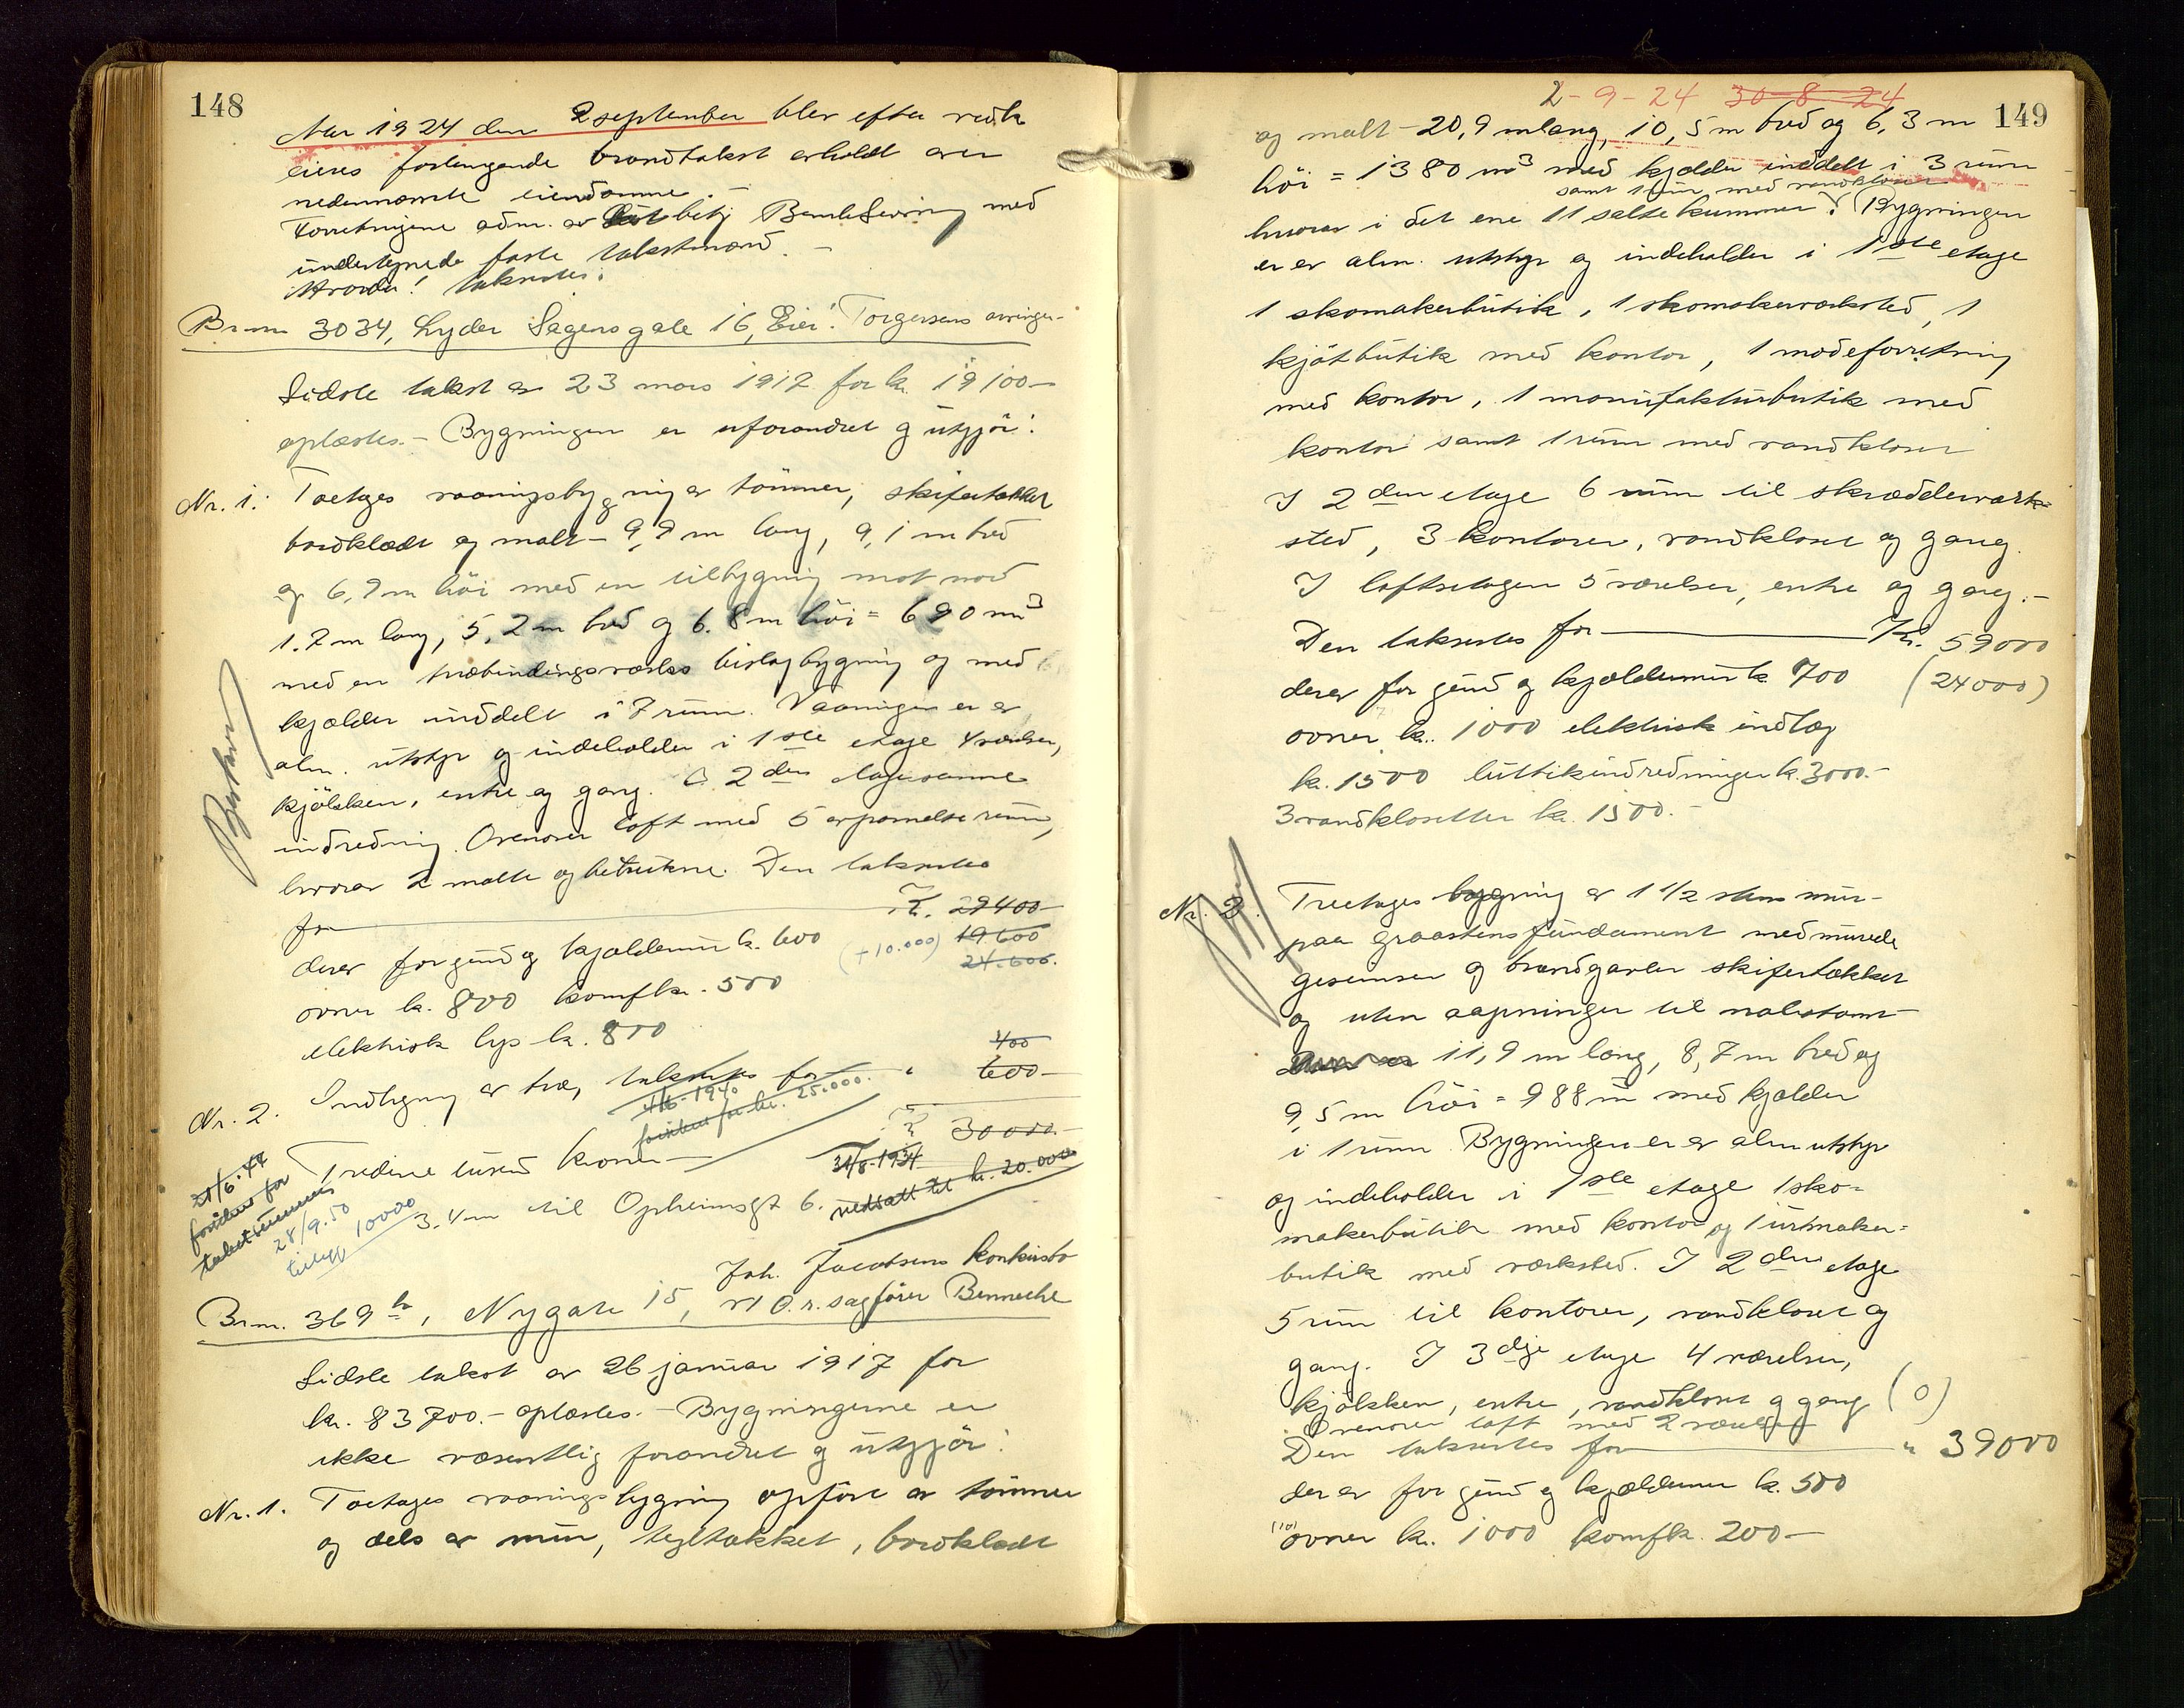 148
Aar 1924 den 2 september blev efter vedk
eieres forlangende brandtakst avholdt over
nedennævnte eiendomme. –
Forretningene adm. av betj med
undertegnede faste takstmænd. –
Hvorda! takstedes:
Br.nr. 3034, Lyder Sagens gate 16, Eier: Torgersens arvinger.
Sidste takst av 23 mars 1917 for kr. 19100–
oplæstes. – Bygningen er uforandret og utgjør:
Nr. 1. Toetages vaaningsbygning av tømmer, skifertækket
bordklædt og malt – 9,9 m lang, 9,1 m bred
og 6,9 m høi med en tilbygning mot nord
1.7 m lang, 5,2 m bred og 6.8 m høi = 690 m3
med en træbindingsverks bislagbygning og med
kjælder inddelt i 7 rum. Vaaningen er av
alm. utstyr og indeholder i 1ste etage 4 værelser,
kjøkken, entre og gang. I 2den etage samme
indredning. Ovenover loft med 5 avpanelte rum,
hvorav 2 malte og betrukne. Den takstedes
for Kr. 29400–
19600
derav for grund og kjældermur kr. 600 (+10.000) 24.600.
ovner kr. 800 komf kr. 500
elektrisk lys kr. 800
400
Nr. 2. Indhegning av træ, takstedes for " 600–
4/6-1940
forsikres for kr. 25.000.
Kr 30000.–
Tredive tusend kroner
31/8-1934
nedsatt til kr. 20.000
3.4 m til Opheimsgt 6.
21/6-44
forsikres for
takstsummen
28/9.50
tillegg 10000
Joh. Jacobsens konkursbo
Br.nr. 369 b, Nygate 15, v/ O.r. sagfører Benneche
Sidste takst av 26 januar 1917 for
kr. 83700.– oplæstes. – Bygningerne er
ikke væsentlig forandret og utgjør:
Nr. 1. Toetages vaaningsbygning opført av tømmer
og dels av mur, tegltækket, bordklædt
2-9-24 30-8-24
149
og malt – 20,9 m lang, 10,5 m bred og 6,3 m
høi = 1380 m3 med kjelder inddelt i 3 rum
samt 1 rum med vandkloset
hvorav i det ene 11 saltekummer. Bygningen
er av alm. utstyr og indeholder i 1ste etage
1 skomakerbutik, 1 skomakerværksted, 1
kjøtbutik med kontor, 1 modeforretning
med kontor, 1 manufakturbutik med
kontor samt 1 rum med vandkloset
I 2den etage 6 rum til skrædderværk-
sted, 3 kontorer, vandkloset og gang.
I loftsetagen 5 værelser, entre og gang. –
Den takstedes for Kr. 59000
derav for grund og kjældermur kr. 700 (24000)
ovner kr. 1000 elektrisk indlæg
kr. 1500 buttikindredninger kr. 3000.–
3 vandklosetter kr. 1500.–
Nr. 2. Treetages bygning av 1 1/2 stens mur-
paa graastensfundament med murede
gesimser og brandgavler skifertækket
og uten aapninger til nabotomt
11,9 m lang, 8,7 m bred og
9,5 m høi = 988 m3 med kjælder
i 1 rum Bygningen er av alm utstyr
og indeholder i 1ste etage 1 sko-
makerbutik med kontor og 1 urmaker-
butik med verksted. I 2den etage
5 rum til kontorer, vandkloset og
gang. I 3dje etage 4 værelser,
kjøkken, entre, vandkloset og gang (0)
Ovenover loft med 2 værelser
Den takstedes for " 39000
derav for grund og kjældermur kr. 500
(10) ovner kr. 1000 komf kr. 200–